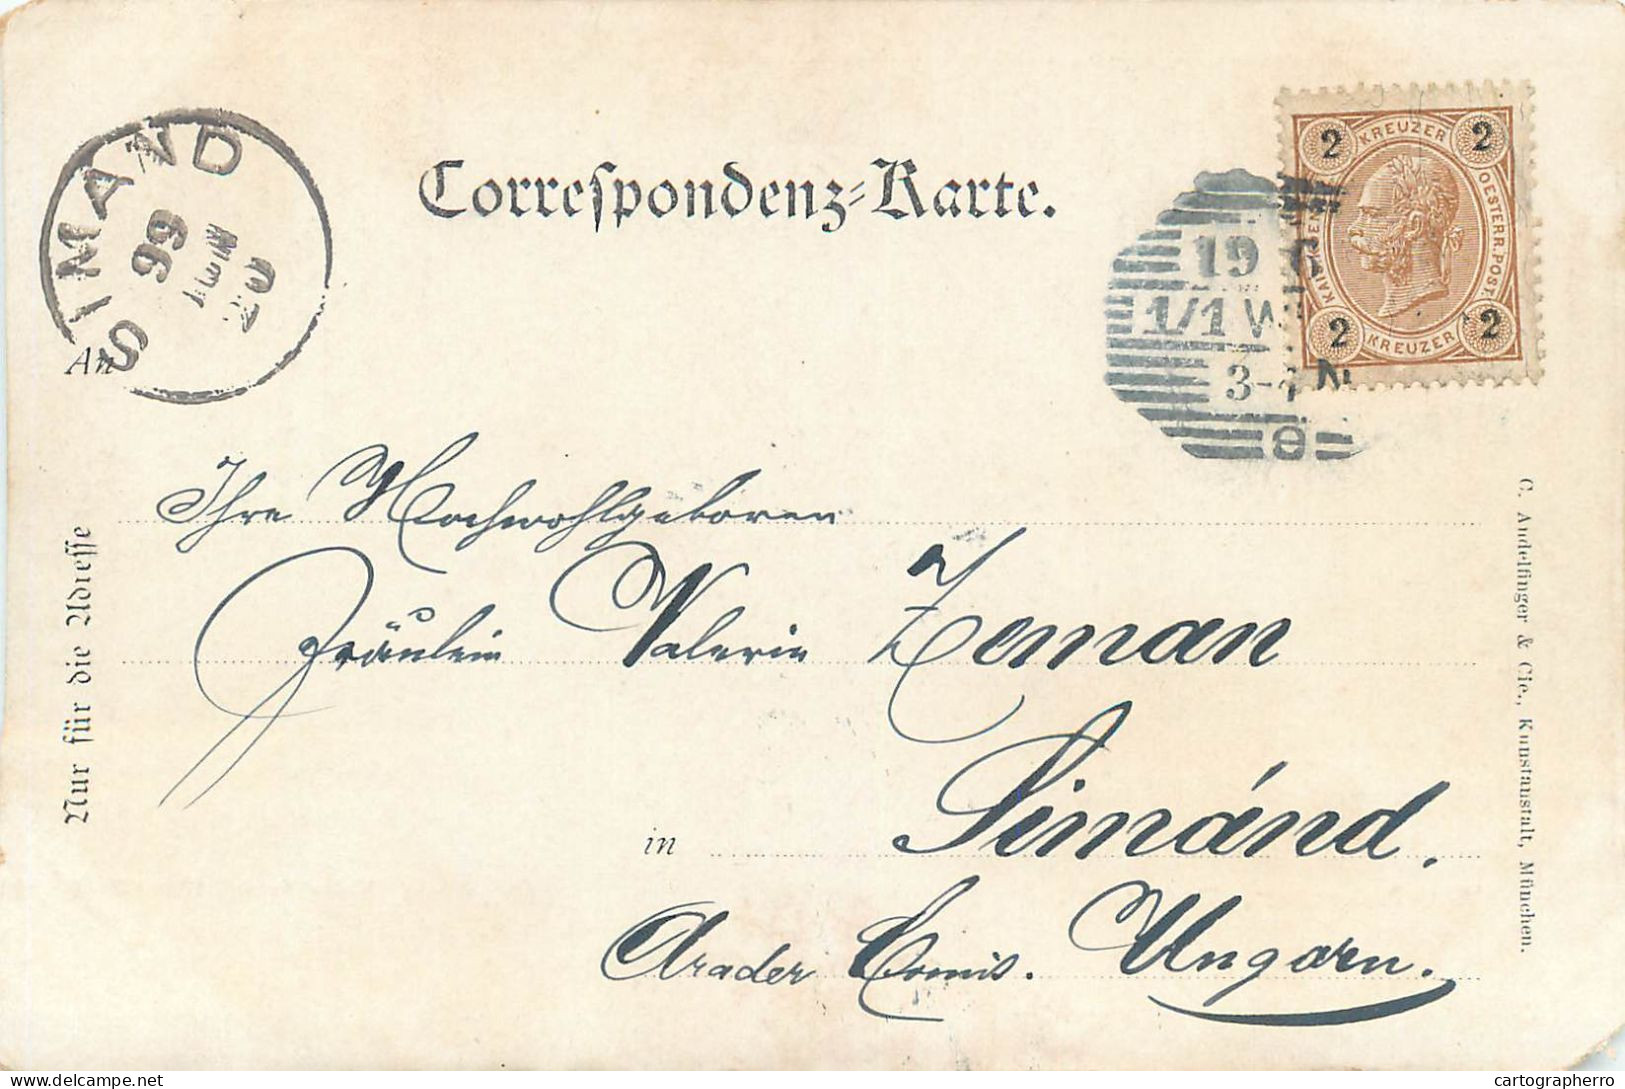 SIMAND
99
20
Correspondenz-Karte.
2 KREUZER 2
OESTERR. POST.
19
1/1 W
3-4 N
2 KREUZER 2
An
Ihre Hochwohlgeboren
Fräulein Valerie Zeman
in Simánd.
Arader Comis. Ungarn.
Nur für die Adresse
C. Andelfinger & Cie., Kunstanstalt, München.
cartographerro